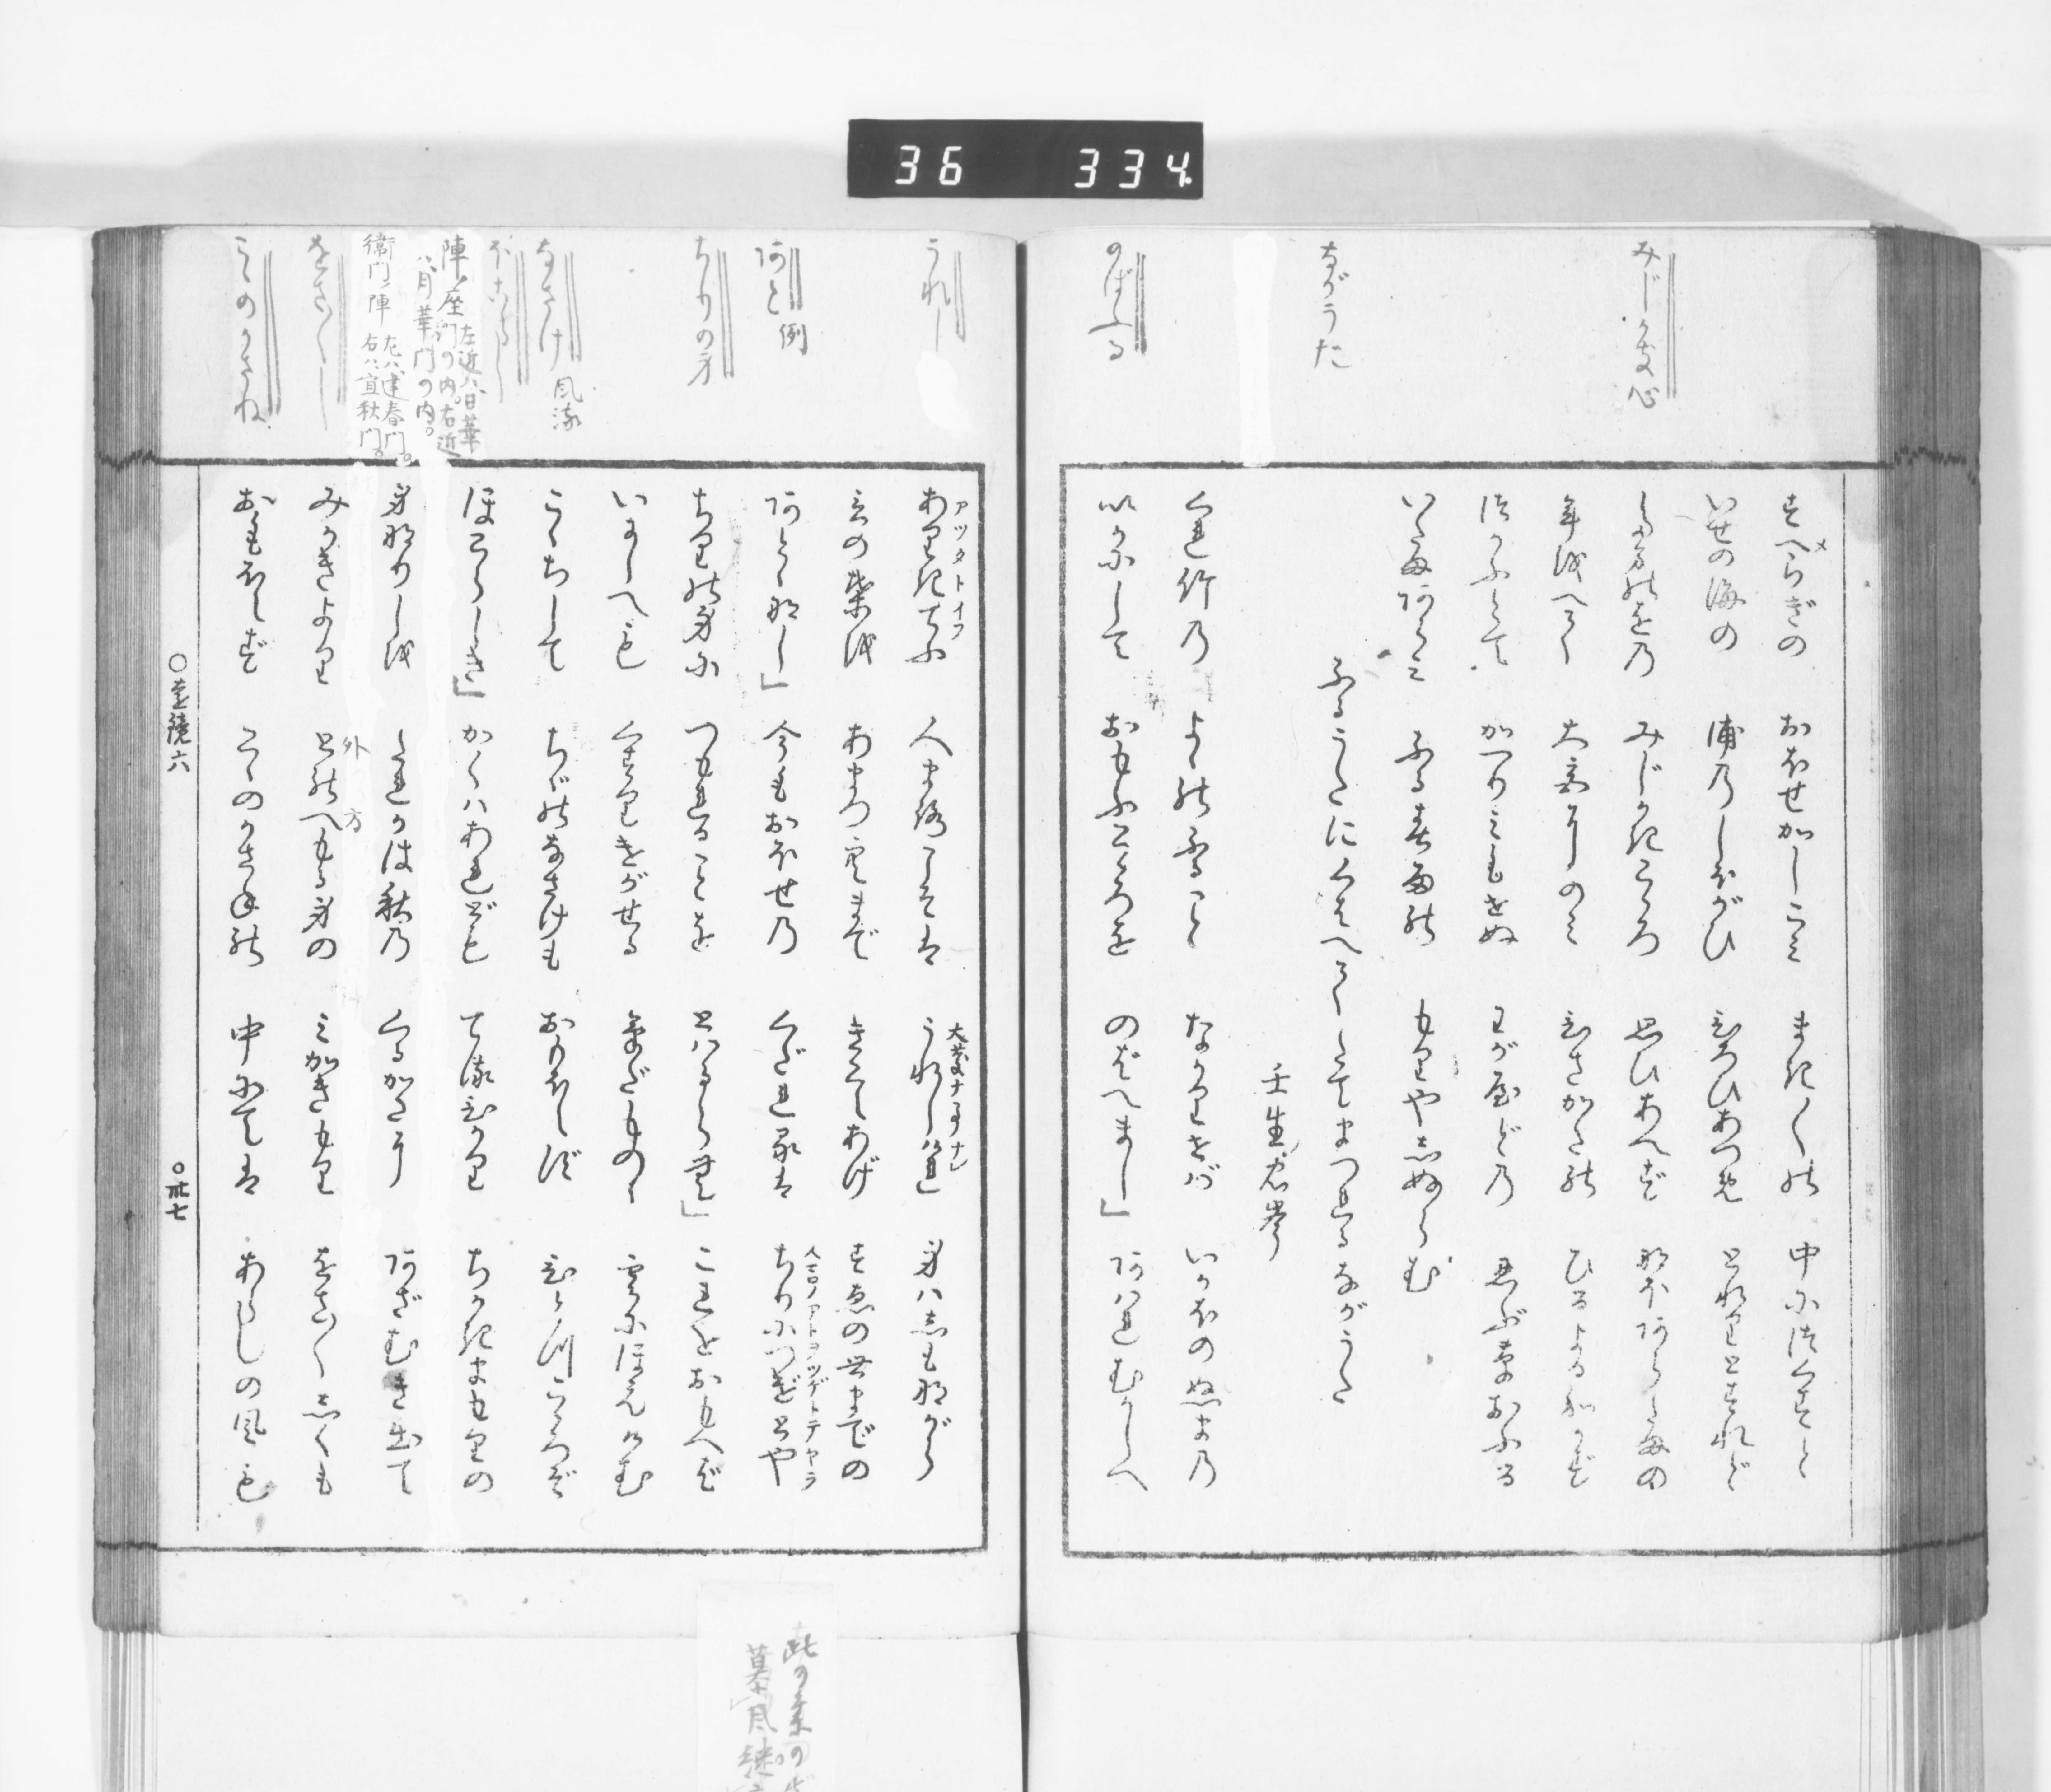 36 334
みじかき心
ながうた
のばふる
すへらぎの おほせかしこみ まき〳〵の 中につくすと
メ
いせの海の 浦のしほがひ ひろひあつめ とれりとすれど
たまのをの みじかきこゝろ 思ひあへず なほあらたまの
年をへて 大宮にのみ ひさかたの ひるよるわかず
つかふとて かへりみもせぬ わが屋どの 忍ぶ草おふる
いたまあらみ ふる春雨の もりやしぬらむ
ふるうたにくはへてたてまつれるながうた
壬生忠岑
くれ竹の よゝのふること なかりせば いかほのぬまの
いかにして おもふこゝろを のばへまし」 あはれむかしへ
うれし
あと 例
ちりの身
なさけ 風流
ほこらし
陣ノ座 左近ハ日華門の内。右近ハ月華門の内。
衛門ノ陣 左ハ建春門。右ハ宜秋門。
をさ〳〵し
こゝのかさね
アツタトイフ
ありきてふ 人まろこそは うれしけれ 身はしもながら
言の葉を あまつ空まで きこえあげ すゑの世までの
あとゝなし」 今もおほせの くだれるは ちりにつげとや
人マロノアトヲツゲトテヤラ
ちりの身に つもれることを とはるらむ」 これをおもへば
いにしへも くすりけがせる けだものゝ 雲にほえけむ
こゝちして ちゞのなさけも おもほえず ひとつごゝろぞ
ほこらしき」 かくはあれども てる光 ちかきまもりの
身なりしを たれかは秋の くるかたに あざむき出て
みかきより とのへもる身の みかきもり をさ〳〵しくも
外 方
おもほえず こゝのかさねの 中にては あらしの風も
○遠鏡六 ○卅七
此の条の